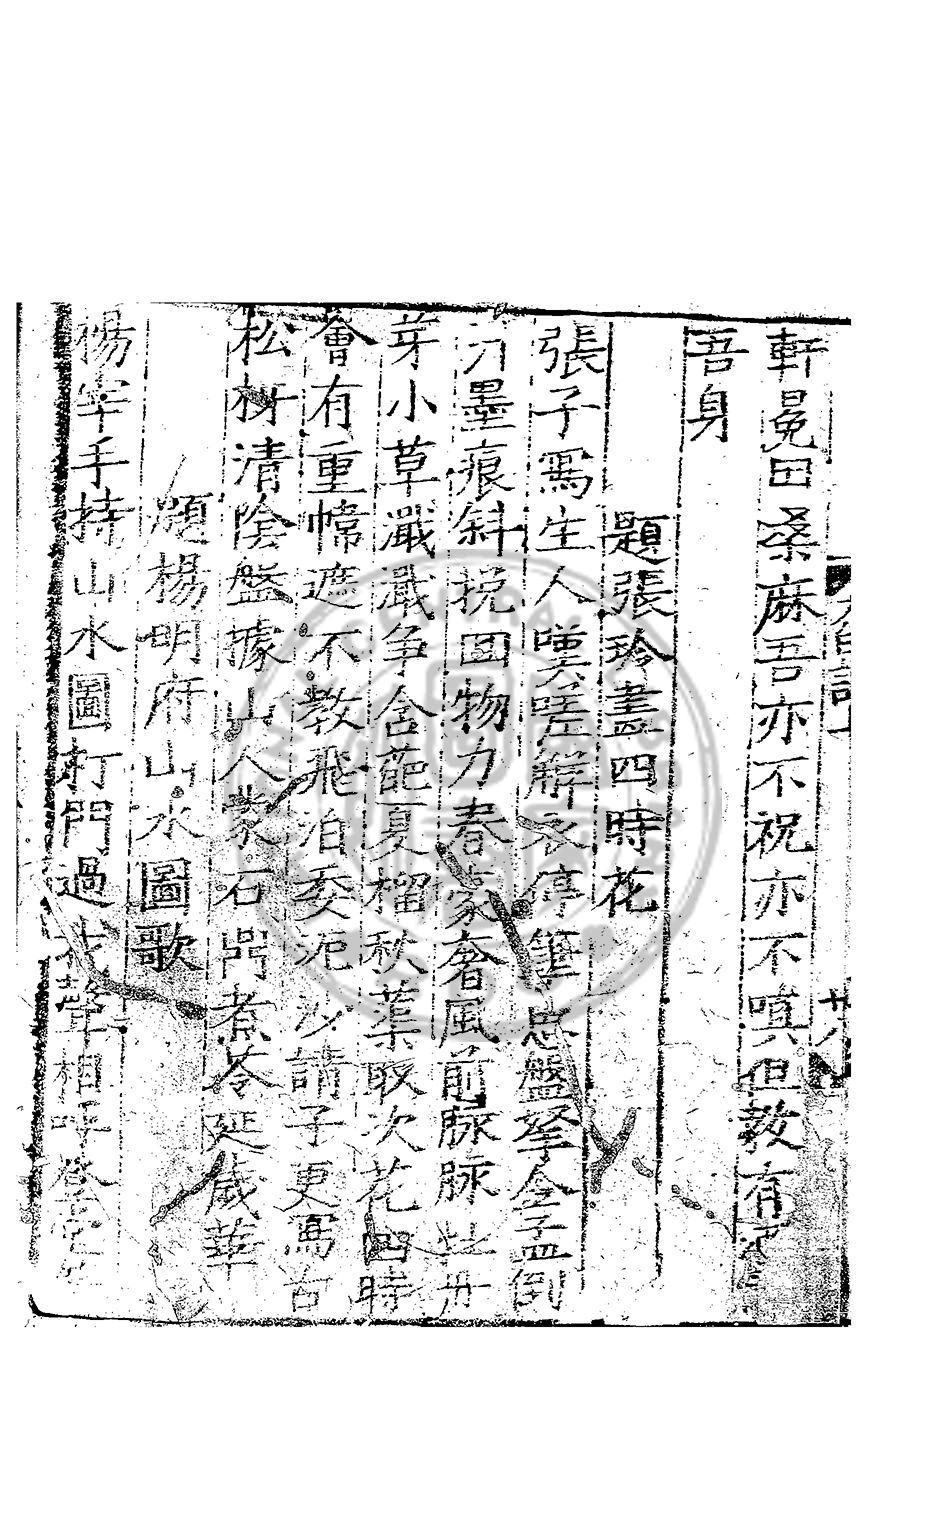 軒冕田桑麻吾亦不祝亦不嗔但敎有
吾身
題張珍畫四時花
張子寫生人嘆嗟解衣停筆思盤拏金盃倒
墨痕斜挽回物力春豪奢風前脉脉牡丹
芽小草濈濈争含葩夏榴秋葉取次花四時
會有重幃遮不敎飛泊委泥沙請子更寫古
松树清陰盤據山人家石鼎煮苓延歲華
題楊明府山水圖歌
楊宰手持山水圖打門過我聲相呼登
廿八